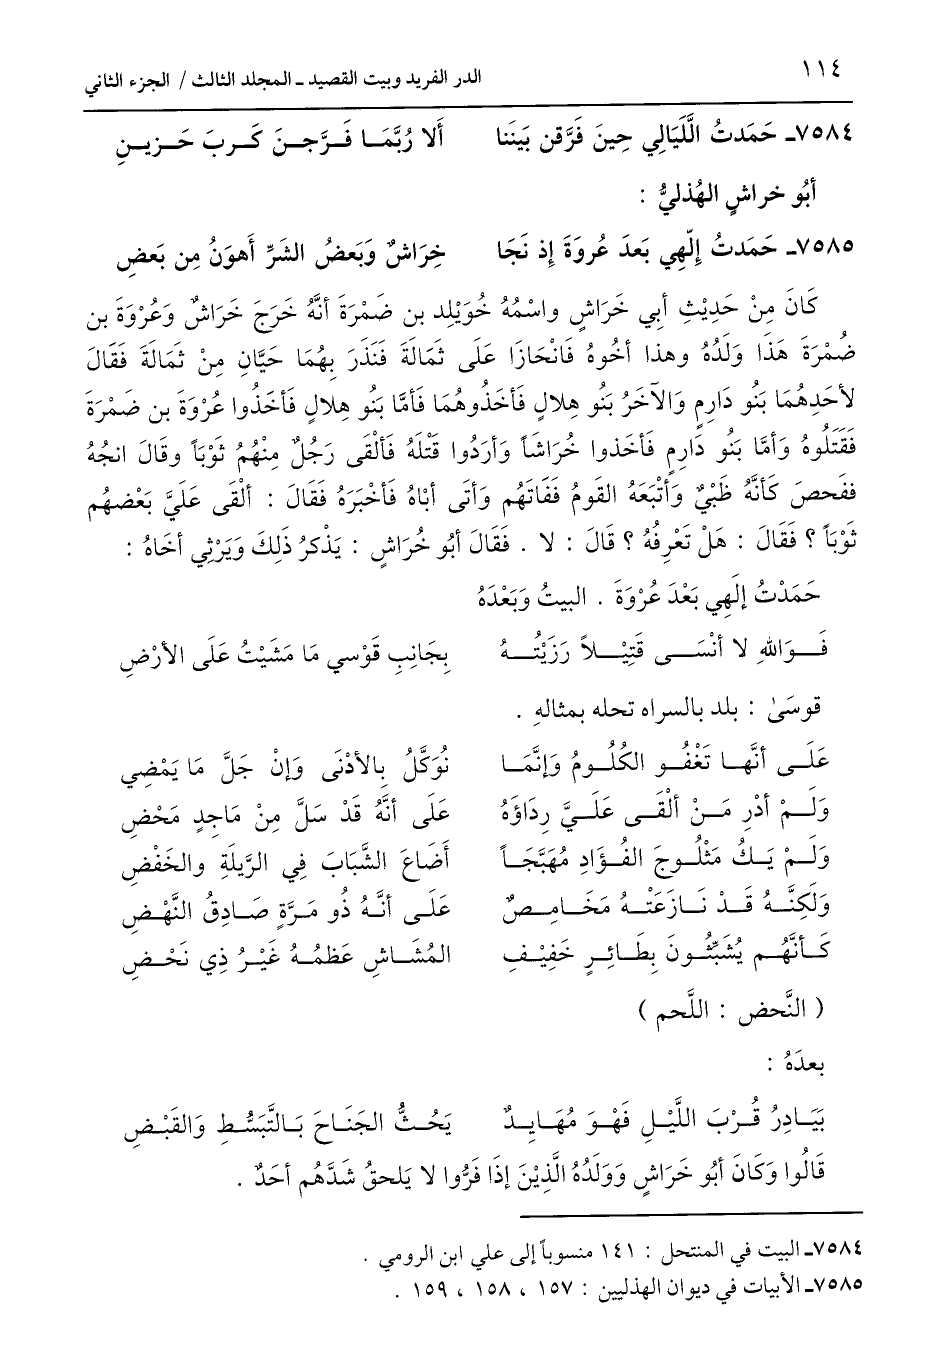 ١١٤
الدر الفريد وبيت القصيد ـ المجلد الثالث / الجزء الثاني
٧٥٨٤ـ حَمَدتُ اللَّيَالِي حِينَ فَرَّقن بَيْنَنا أَلا رُبَّمَا فَرَّجنَ كَربَ حَزينِ
أَبُو خراشٍ الهُذليُّ :
٧٥٨٥ـ حَمَدتُ إِلَهي بَعدَ عُروَةَ إِذ نَجَا خِرَاشٌ وَبَعضُ الشَرِّ أَهوَنُ مِن بَعضِ
كَانَ مِنْ حَدِيْثِ أَبي خَرَاشٍ واسْمُهُ خُوَيْلِد بن ضَمْرَةَ أنَّهُ خَرَجَ خَرَاشٌ وَعُرْوَة بن
ضُمْرَةَ هَذَا وَلَدُهُ وهذا أخُوهُ فَانْحَازَا عَلَى ثَمَالَةَ فَنَذَرَ بِهُمَا حَيَّانِ مِنْ ثَمالَةَ فَقَالَ
لأَحدِهُمَا بَنُو دَارِمٍ وَالآخَرُ بَنُو هِلالٍ فَأَخذُوهُمَا فَأَمَّا بَنُو هِلالٍ فَأَخَذُوا عُرْوَةَ بن ضَمْرَةَ
فَقَتَلُوهُ وَأمَّا بَنُو دَارِمٍ فَأَخذوا خُرَاشَاً وَأَردُوا قَتْلَهُ فَأَلْقَى رَجُلٌ مِنْهُمُ ثَوْبَاً وقَالَ انجُهُ
ففَحصَ كَأنَّهُ ظَبْيٌ وَأتْبَعَهُ القَومُ فَفَاتَهُم وَأتَى أبَاهُ فَأخْبَرَهُ فَقَالَ : ألْقَى عَلَيَّ بَعْضهُم
ثَوْبَاً ؟ فَقَالَ : هَلْ تَعْرِفُهُ ؟ قَالَ : لا . فَقَالَ أبُو خُرَاش : يَذْكرُ ذَلِكَ وَيَرْثِي أخَاهُ :
حَمَدْتُ إلَهِي بَعْدَ عُرْوَةَ . البيتُ وَبَعْدَهُ
فَوَاللهِ لا أنْسَى قَتِيْلاً رَزَيْتُهُ بِجَانِبِ قَوْسي مَا مَشَيْتُ عَلَى الأرْضِ
قوسَىٰ : بلد بالسراه تحله بمثالهِ .
عَلَى أنَّها تَغْفُو الكُلُومُ وَإنَّمَا نُوَكَّلُ بِالأدْنَى وَإنْ جَلَّ مَا يَمْضِي
وَلَمْ أدْرِ مَنْ ألْقَى عَلَيَّ رِدَاؤَهُ عَلَى أنَّهُ قَدْ سَلَّ مِنْ مَاجِدٍ مَحْضِ
وَلَمْ يَكُ مَثْلُوجَ الفُؤَادِ مُهَبَّجَاً أضَاعَ الشَّبَابَ فِي الرَّبِلَةِ والخَفْضِ
وَلَكِنَّهُ قَدْ نَازعَتْهُ مَخَامِصٌ عَلَى أنَّهُ ذُو مَرَّةٍ صَادِقُ النَّهْضِ
كَأنَّهُم يُشَبَّثُونَ بِطَائِرٍ خَفِيْفِ المُشَاشِ عَظمُهُ غَيْرُ ذِي نَحْضِ
( النَّحض : اللَّحم )
بعدَهُ :
يَبَادِرُ قُرْبَ اللَّيْلِ فَهْوَ مُهَابِدٌ يَحُثُّ الجَنَاحَ بَالتَّبَسُّطِ وَالقَبْضِ
قَالُوا وَكَانَ أبُو خَرَاشٍ وَوَلَدُهُ الَّذِيْنَ إذَا فَرُّوا لا يَلحقُ شَدَّهُم أحَدٌ .
٧٥٨٤ـ البيت في المنتحل : ١٤١ منسوباً إلى علي ابن الرومي .
٧٥٨٥ـ الأبيات في ديوان الهذليين : ١٥٧ ، ١٥٨ ، ١٥٩ .